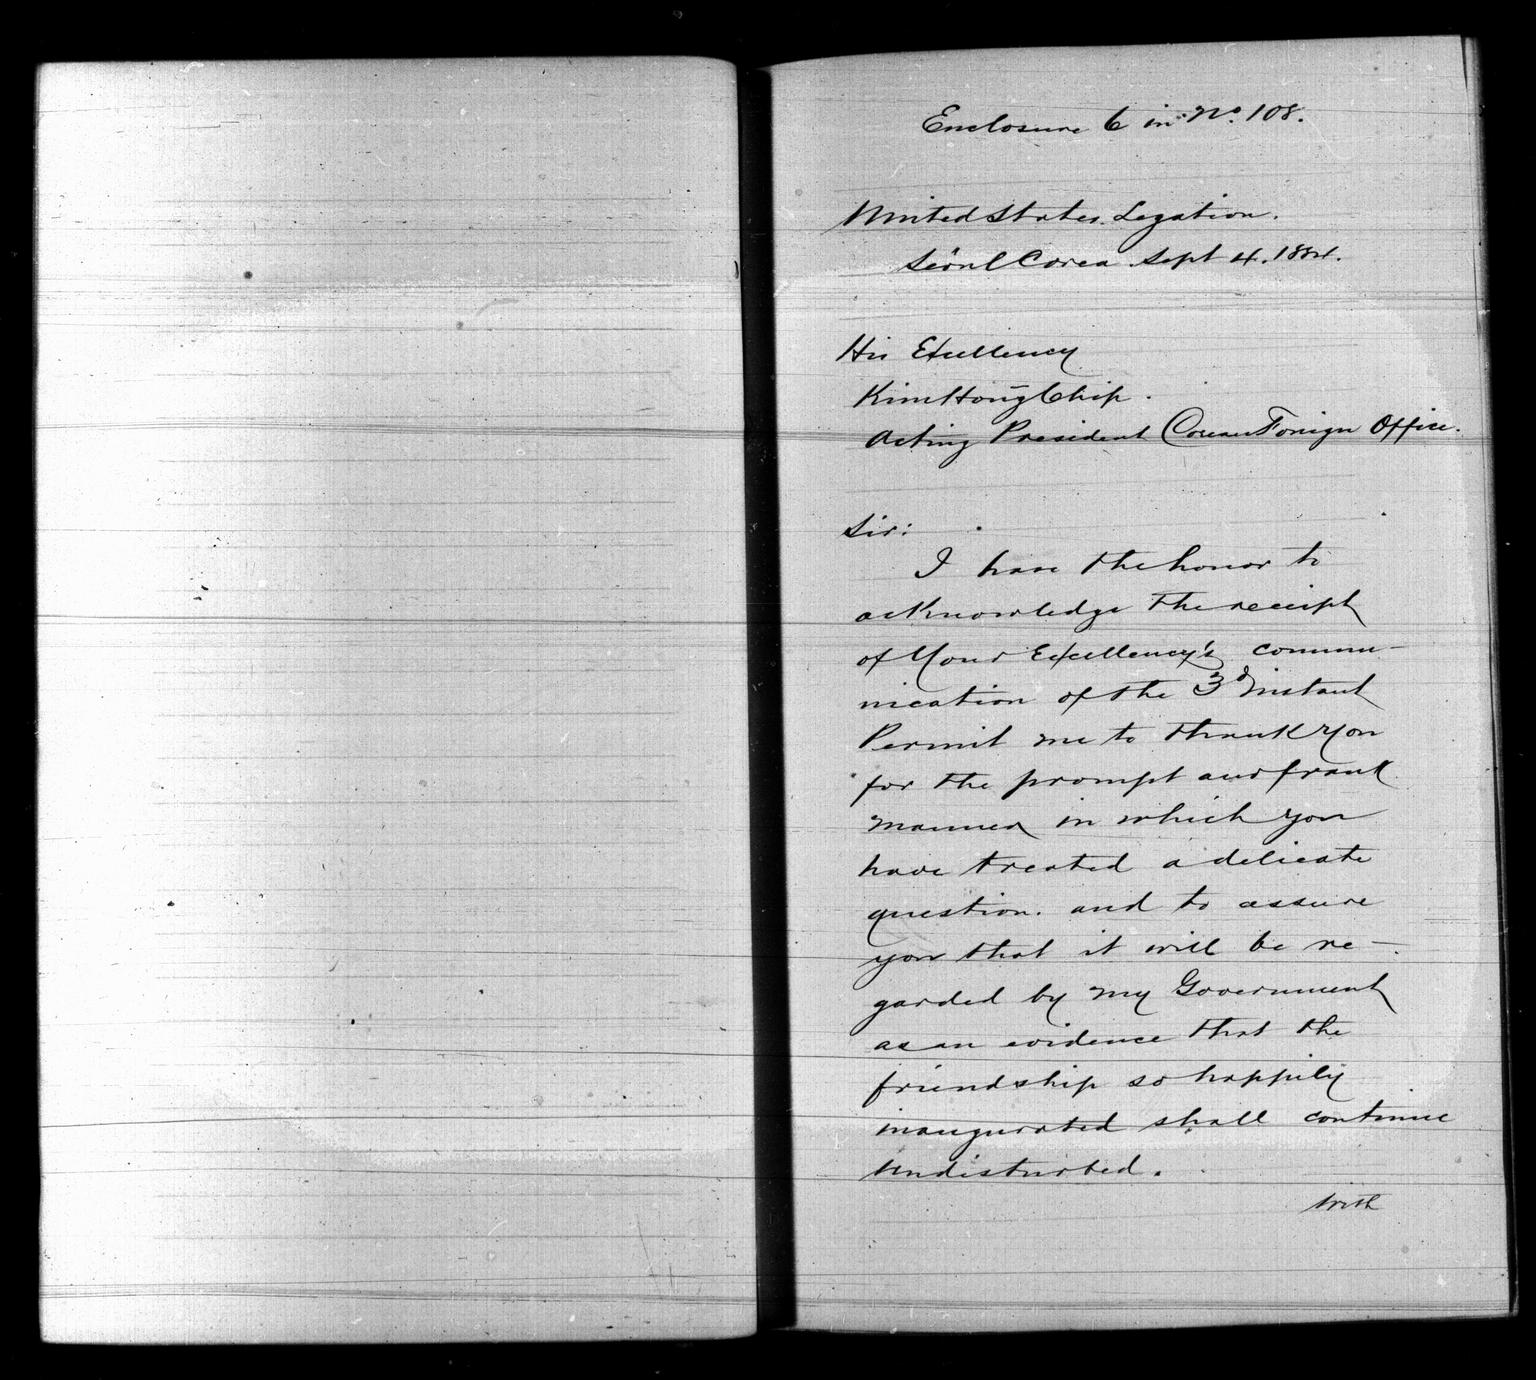 Enclosure 6 in No. 108.
United States Legation.
Seoul Corea Sept 4. 1884.
His Excellency
Kim Hong Chip.
Acting President Corean Foreign Office.
Sir:
I have the honor to
acknowledge the receipt
of Your Excellency's commu-
nication of the 3d instant
Permit me to thank You
for the prompt and frank
manner in which you
have treated a delicate
question. and to assure
you that it will be re-
garded by my Government
as an evidence that the
friendship so happily
inaugurated shall continue
undisturbed.
With